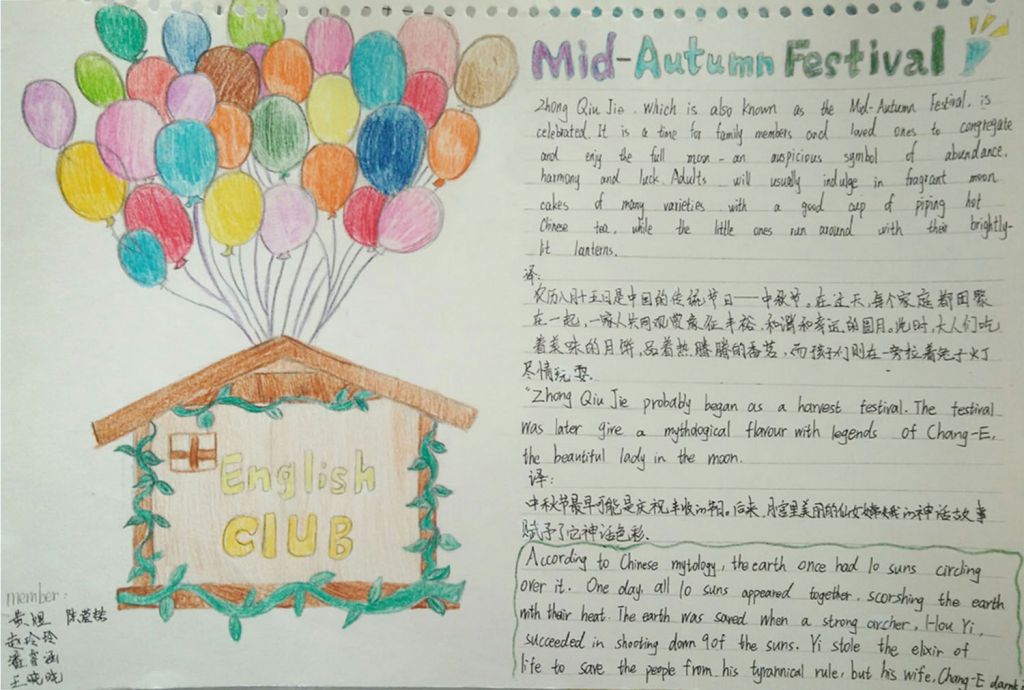 Mid-Autumn Festival
Zhong Qiu Jie, which is also known as the Mid-Autumn Festival, is
celebrated. It is a time for family members and loved ones to congregate
and enjy the full moon - an auspicious symbol of abundance,
harmony and luck. Adults will usually indulge in fragrant moon
cakes of many varieties with a good cup of piping hot
Chinese tea, while the little ones run around with their brightly-
lit lanterns.
译:
农历八月十五日是中国的传统节日——中秋节。在这天,每个家庭都团聚
在一起,一家人共同观赏象征丰裕、和谐和幸运的圆月。此时,大人们吃
着美味的月饼,品着热腾腾的香茗,而孩子们则在一旁拉着兔子灯
尽情玩耍.
"Zhong Qiu Jie probably began as a harvest festival. The festival
was later give a mythological flavour with legends of Chang-E,
the beautiful lady in the moon.
译:
中秋节最早可能是庆祝丰收的节日。后来,月宫里美丽的仙女嫦娥的神话故事
赋予了它神话色彩.
According to Chinese mytology, the earth once had 10 suns circling
over it. One day, all 10 suns appeared together, scorshing the earth
with their heat. The earth was saved when a strong archer, Hou Yi,
succeeded in shooting down 9 of the suns. Yi stole the elixir of
life to save the people from his tyrannical rule, but his wife, Chang-E
English
CLUB
member:
赵玲玲
王晓晓